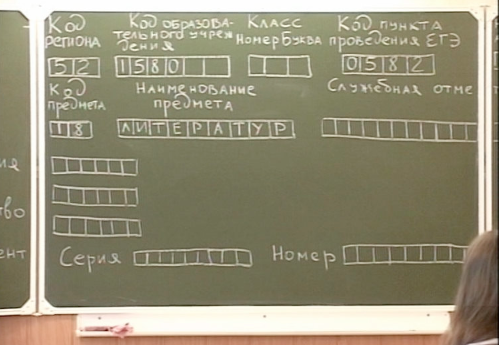 Код Код образова- Класс Код пункта
региона тельного учреж НомерБуква проведения ЕГЭ
дения
52 1580 0582
Код Наименование Служебная отме
предмета предмета
18 ЛИТЕРАТУР
ия
во
ент Серия Номер